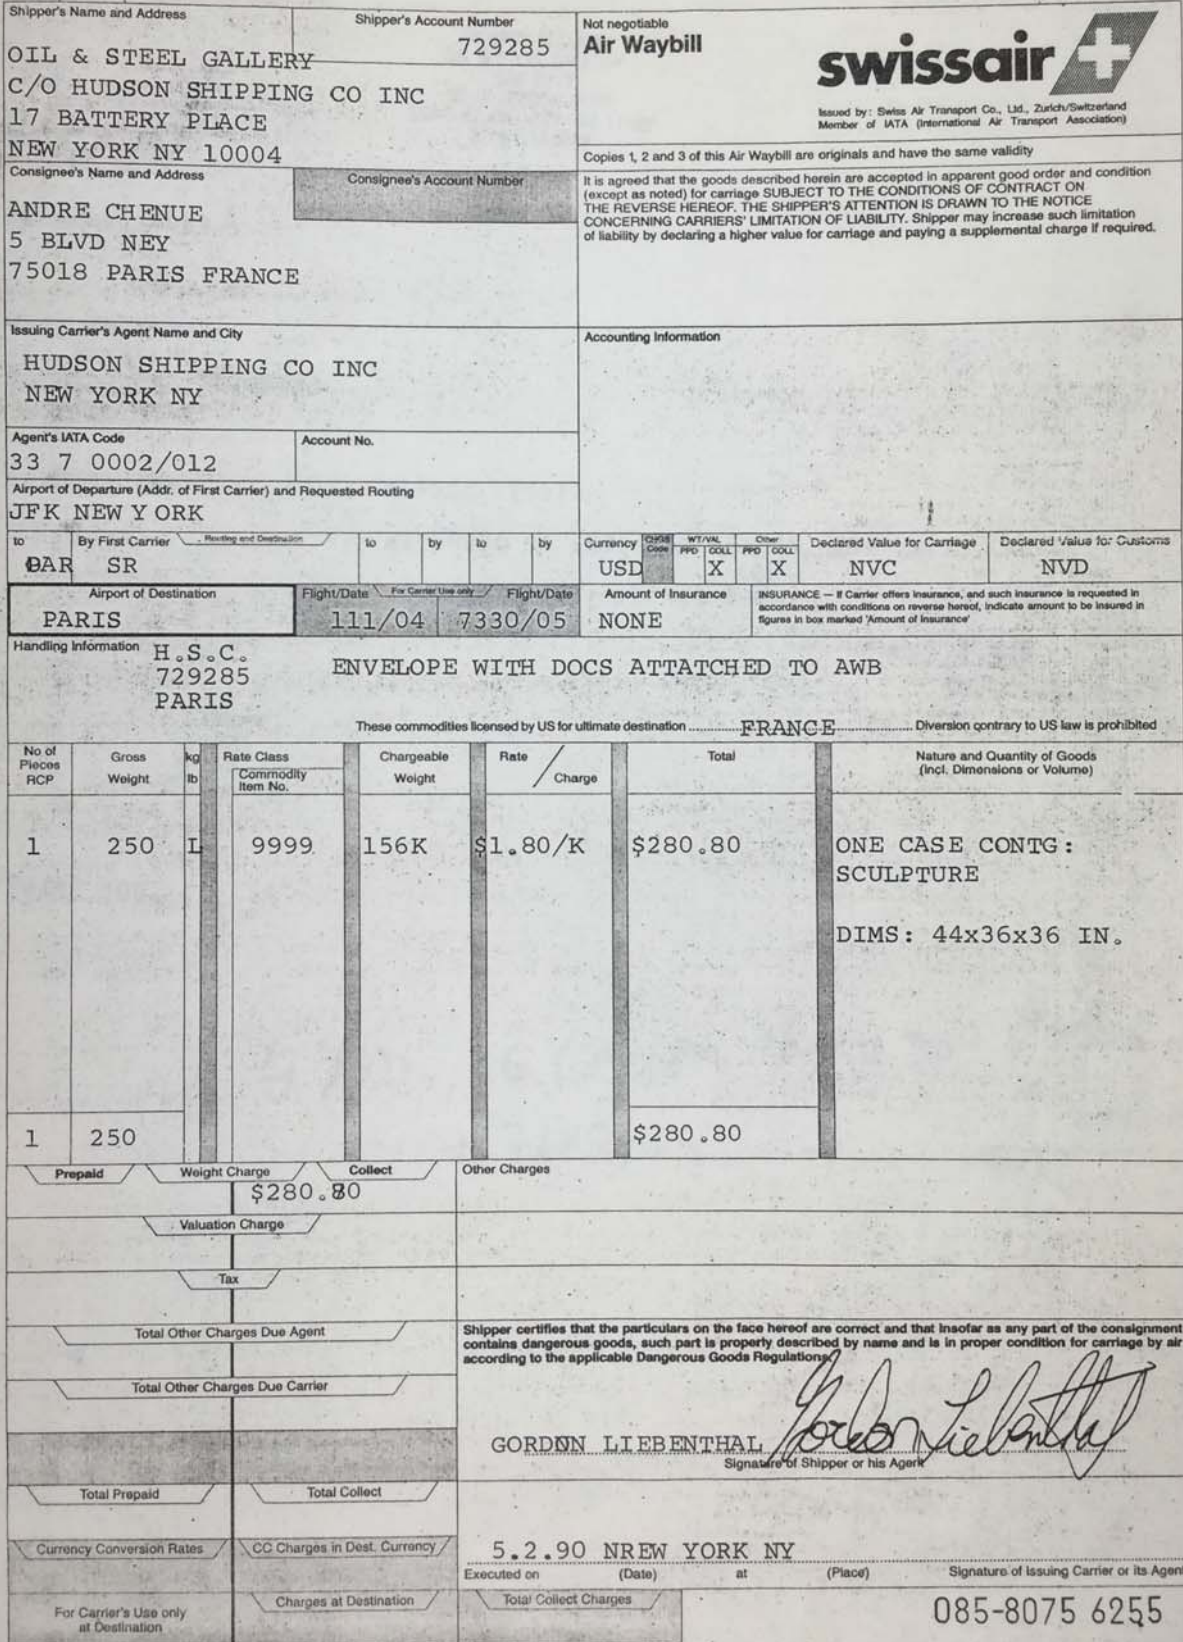 Shipper's Name and Address
Shipper's Account Number
729285
OIL & STEEL GALLERY
C/O HUDSON SHIPPING CO INC
17 BATTERY PLACE
NEW YORK NY 10004
Not negotiable
Air Waybill
swissair
Issued by: Swiss Air Transport Co., Ltd., Zurich/Switzerland
Member of IATA (International Air Transport Association)
Copies 1, 2 and 3 of this Air Waybill are originals and have the same validity
Consignee's Name and Address
Consignee's Account Number
ANDRE CHENUE
5 BLVD NEY
75018 PARIS FRANCE
It is agreed that the goods described herein are accepted in apparent good order and condition
(except as noted) for carriage SUBJECT TO THE CONDITIONS OF CONTRACT ON
THE REVERSE HEREOF. THE SHIPPER'S ATTENTION IS DRAWN TO THE NOTICE
CONCERNING CARRIERS' LIMITATION OF LIABILITY. Shipper may increase such limitation
of liability by declaring a higher value for carriage and paying a supplemental charge if required.
Issuing Carrier's Agent Name and City
HUDSON SHIPPING CO INC
NEW YORK NY
Accounting Information
Agent's IATA Code
33 7 0002/012
Account No.
Airport of Departure (Addr. of First Carrier) and Requested Routing
JFK NEW Y ORK
to By First Carrier Routing and Destination to by to by
PAR SR
Currency CHGS Code WT/VAL PPD COLL Other PPD COLL Declared Value for Carriage Declared Value for Customs
USD X X NVC NVD
Airport of Destination
PARIS
Flight/Date For Carrier Use only Flight/Date
111/04 7330/05
Amount of Insurance
NONE
INSURANCE — If Carrier offers insurance, and such insurance is requested in
accordance with conditions on reverse hereof, indicate amount to be insured in
figures in box marked 'Amount of Insurance'
Handling Information
H.S.C.
729285
PARIS
ENVELOPE WITH DOCS ATTATCHED TO AWB
These commodities licensed by US for ultimate destination FRANCE Diversion contrary to US law is prohibited
No of Pieces RCP
Gross Weight
kg lb
Rate Class
Commodity Item No.
Chargeable Weight
Rate / Charge
Total
Nature and Quantity of Goods
(Incl. Dimensions or Volume)
1 250 L 9999 156K $1.80/K $280.80 ONE CASE CONTG:
SCULPTURE
DIMS: 44x36x36 IN.
1 250 $280.80
Prepaid Weight Charge Collect
$280.80
Other Charges
Valuation Charge
Tax
Total Other Charges Due Agent
Total Other Charges Due Carrier
Shipper certifies that the particulars on the face hereof are correct and that insofar as any part of the consignment
contains dangerous goods, such part is properly described by name and is in proper condition for carriage by air
according to the applicable Dangerous Goods Regulations.
GORDON LIEBENTHAL Gordon Liebenthal
Signature of Shipper or his Agent
Total Prepaid Total Collect
Currency Conversion Rates CC Charges in Dest. Currency
5.2.90 NREW YORK NY
Executed on (Date) at (Place) Signature of Issuing Carrier or its Agent
For Carrier's Use only
at Destination
Charges at Destination
Total Collect Charges
085-8075 6255